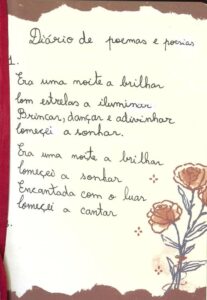 Diário de poemas e poesias
1.
Era uma noite a brilhar
Com estrelas a iluminar
Brincar, dançar e adivinhar
Começei a sonhar.
Era uma noite a brilhar
Começei a sonhar
Encantada com o luar
Começei a cantar